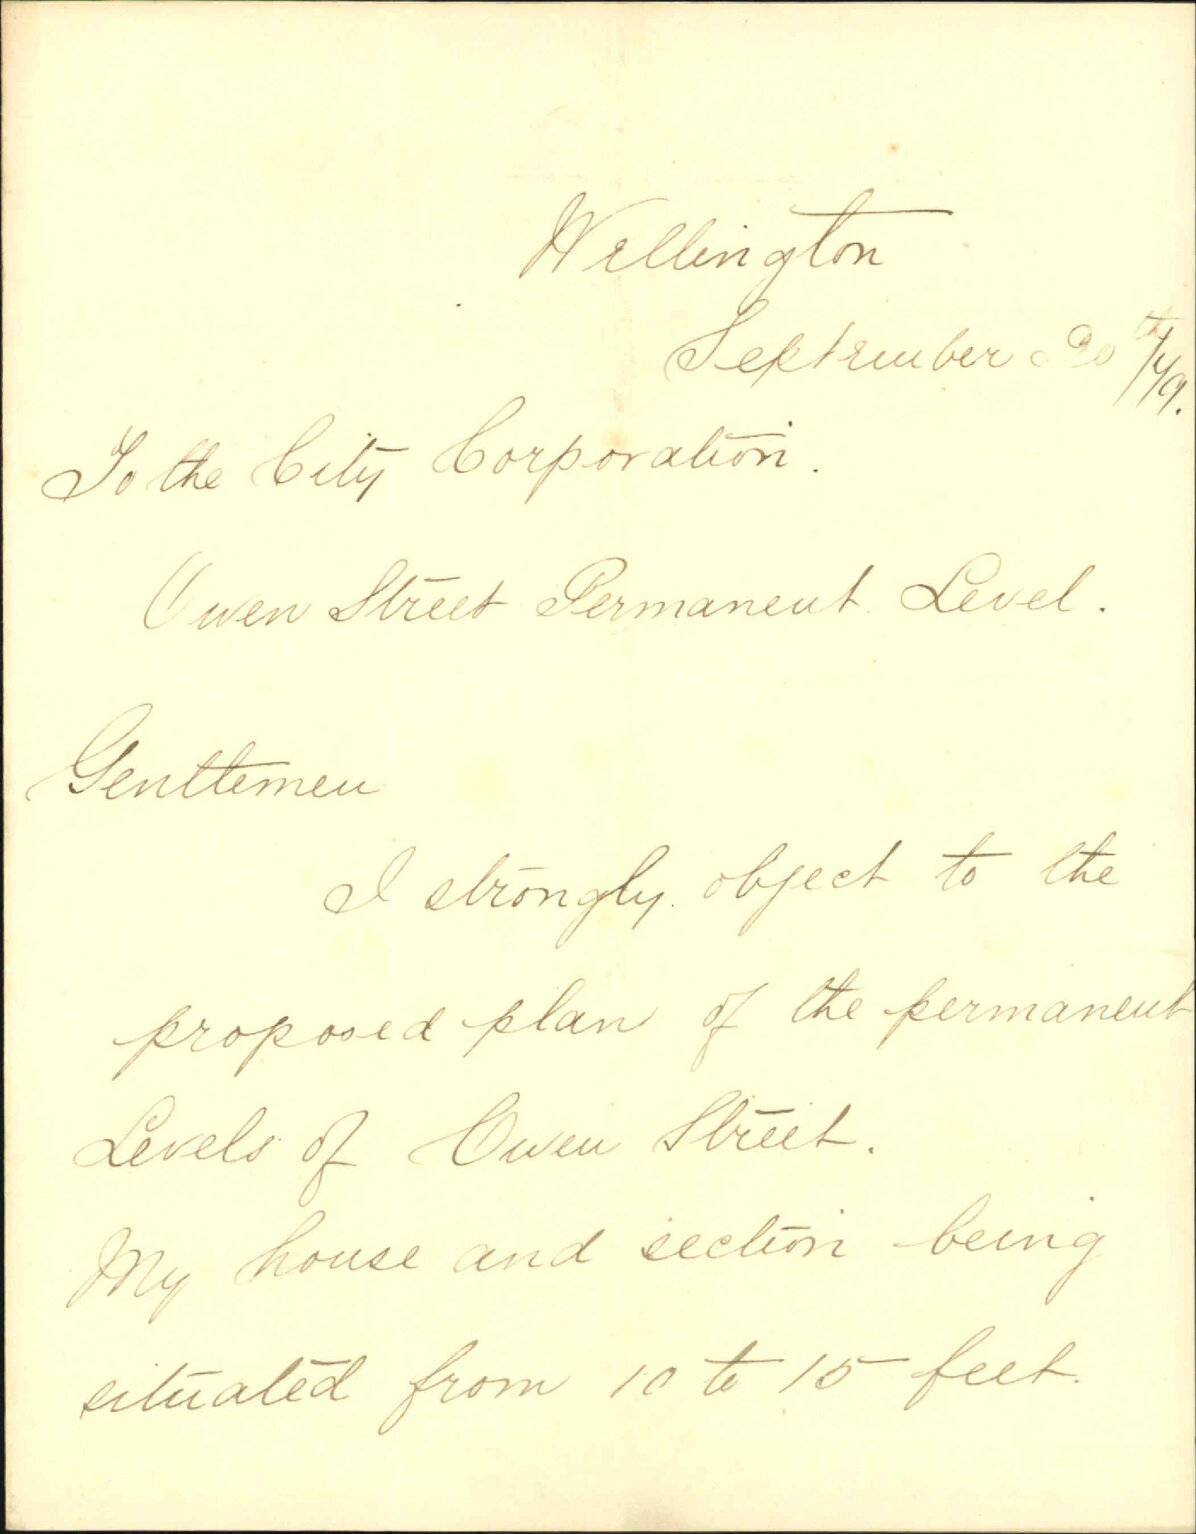 Wellington
September 20th/79.
To the City Corporation.
Owen Street Permanent Level.
Genttemen
I strongly object to the
proposed plan of the permanent
Levels of Owen Street.
My house and section being
situated from 10 to 15 feet.